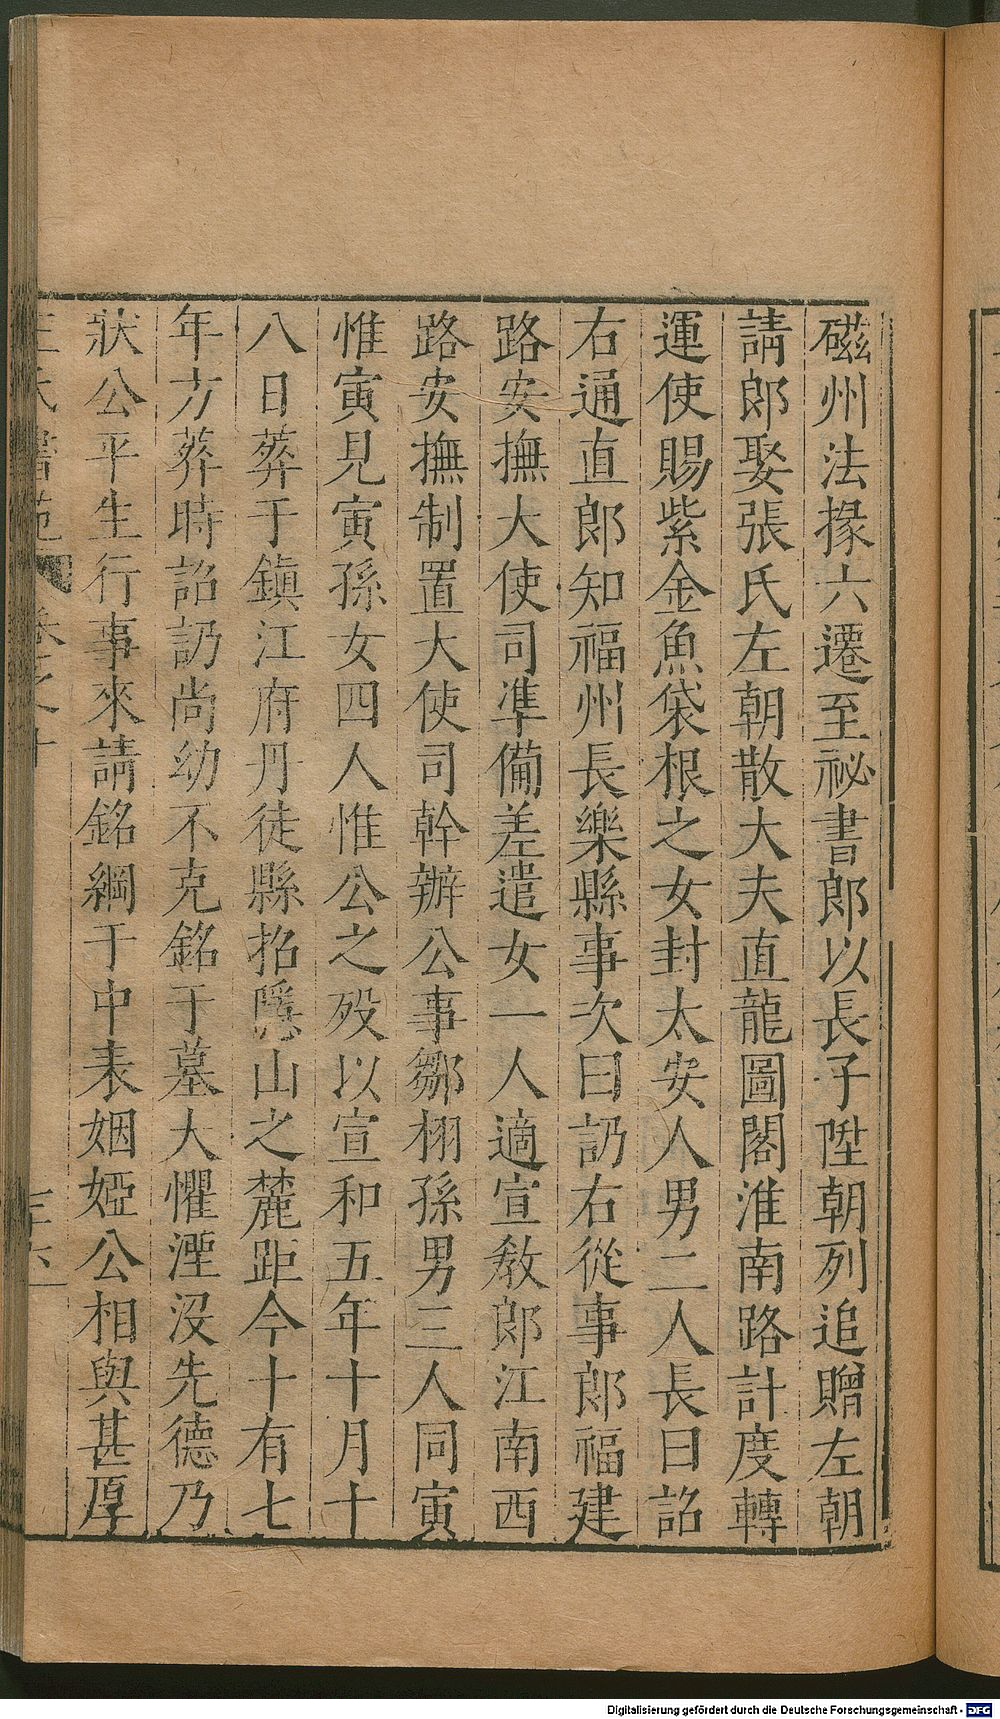 磁州法掾六遷至祕書郎以長子陞朝列追贈左朝
請郎娶張氏左朝散大夫直龍圖閣淮南路計度轉
運使賜紫金魚袋根之女封太安人男二人長曰詔
右通直郎知福州長樂縣事次曰訒右從事郎福建
路安撫大使司準備差遣女一人適宣教郎江南西
路安撫制置大使司幹辦公事鄒栩孫男三人同寅
惟寅見寅孫女四人惟公之歿以宣和五年十月十
八日葬于鎮江府丹徒縣招隱山之麓距今十有七
年方葬時詔訒尚幼不克銘于墓大懼湮沒先德乃
狀公平生行事來請銘綱于中表姻婭公相與甚厚
王氏書苑 卷之十
Digitalisierung gefördert durch die Deutsche Forschungsgemeinschaft - DFG